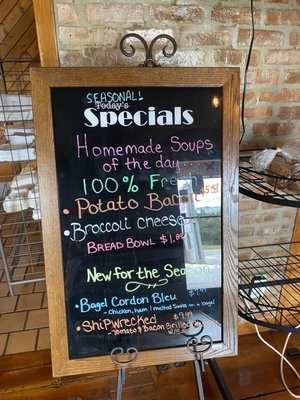 SEASONAL!
Today's
Specials
Homemade Soups
of the day...
100% Fresh
• Potato Bacon
• Broccoli Cheese
BREAD BOWL $1.89
New for the Season
• Bagel Cordon Bleu
- Chicken, ham, melted Swiss on a bagel
• Shipwrecked $9.49
- Tomato & Bacon Grilled